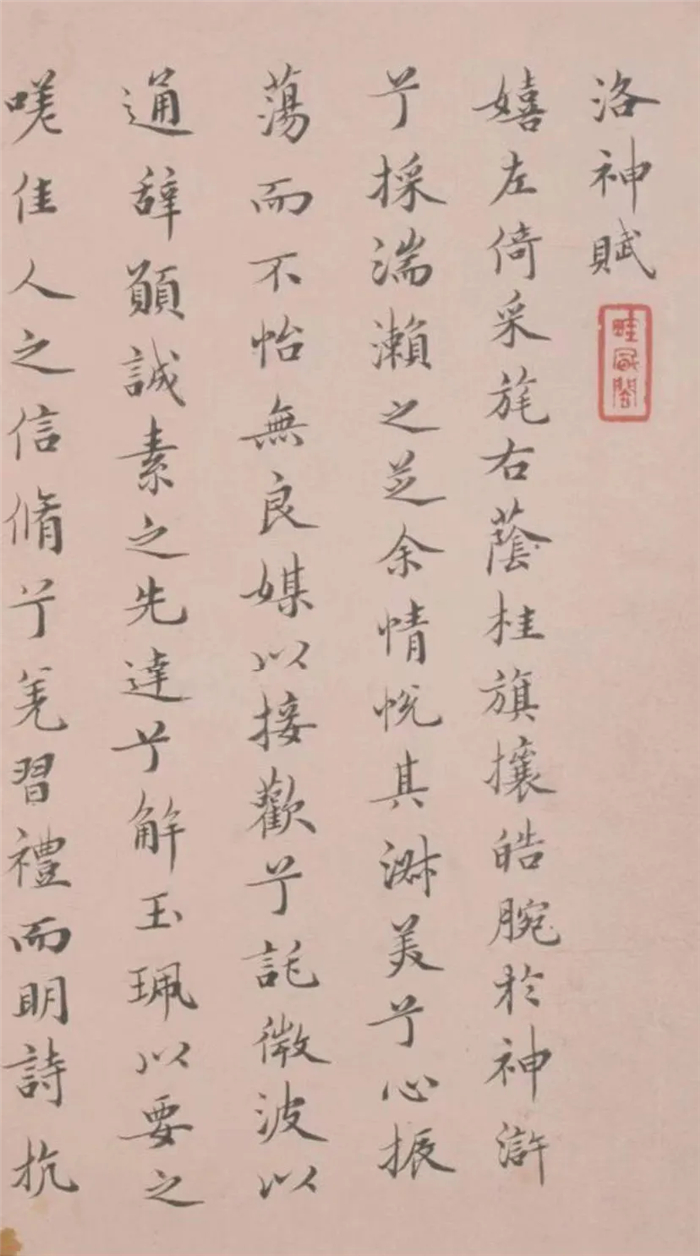 洛神賦
嬉左倚采旄右蔭桂旗攘皓腕於神滸
兮採湍瀨之芝余情悅其淑美兮心振
蕩而不怡無良媒以接歡兮託微波以
通辭願誠素之先達兮解玉珮以要之
嗟佳人之信脩兮羌習禮而明詩抗